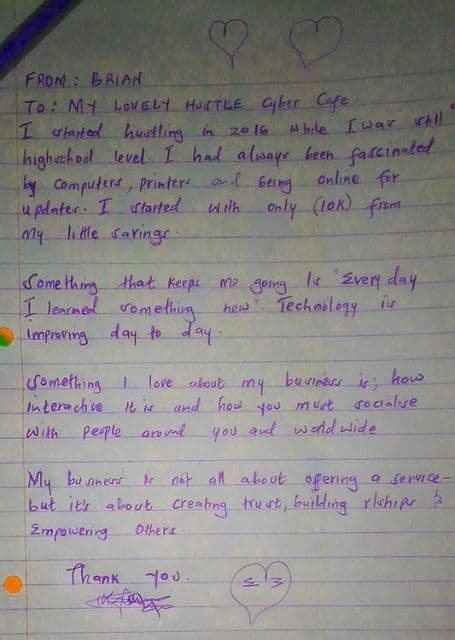 FROM: BRIAN
TO: MY LOVELY HUSTLE Cyber Cafe.
I started hustling in 2016 while I was still
highschool level. I had always been fascinated
by computers, printers and being online for
updates. I started with only (10K) from
My little savings.
Something that keeps me going Is "Every day
I learned something new". Technology is
improving day to day.
Something I love about my business is; how
interactive It is and how you must socialise
with people around you and world wide
My business is not all about offering a service-
but it's about creating trust, building r/ships &
Empowering Others.
Thank you.